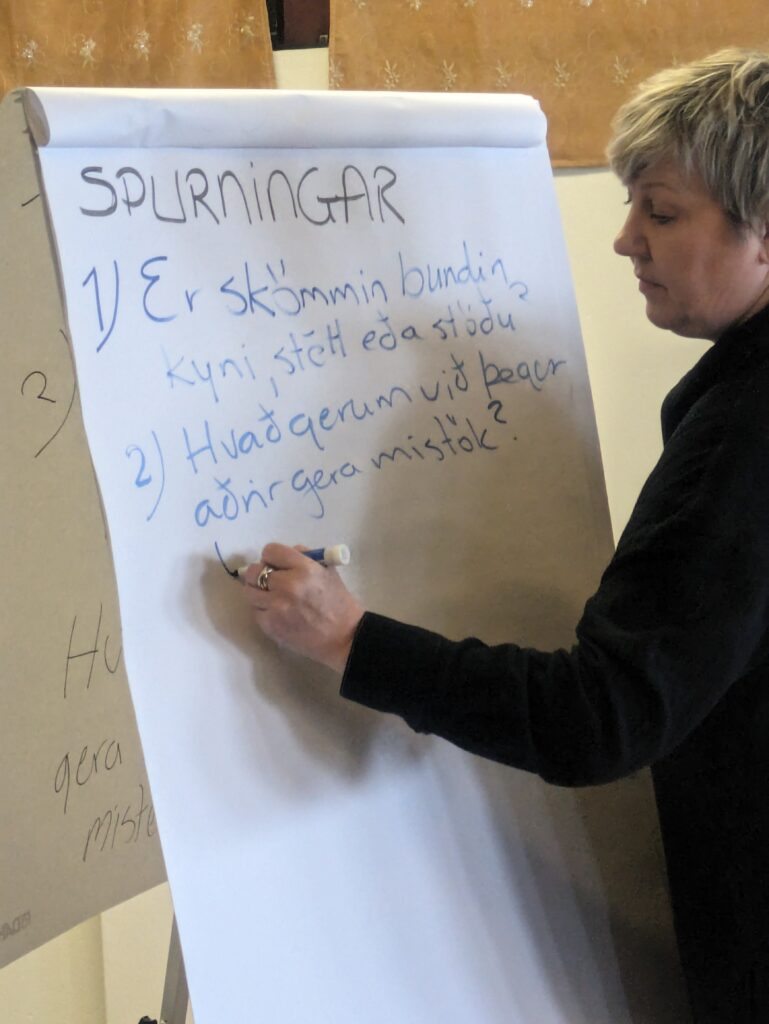 SPURNINGAR
1) Er skömmin bundin
kyni, stétt eða stöðu?
2) Hvað gerum við þegar
aðrir gera mistök?
2)
Hv
gera
mistö